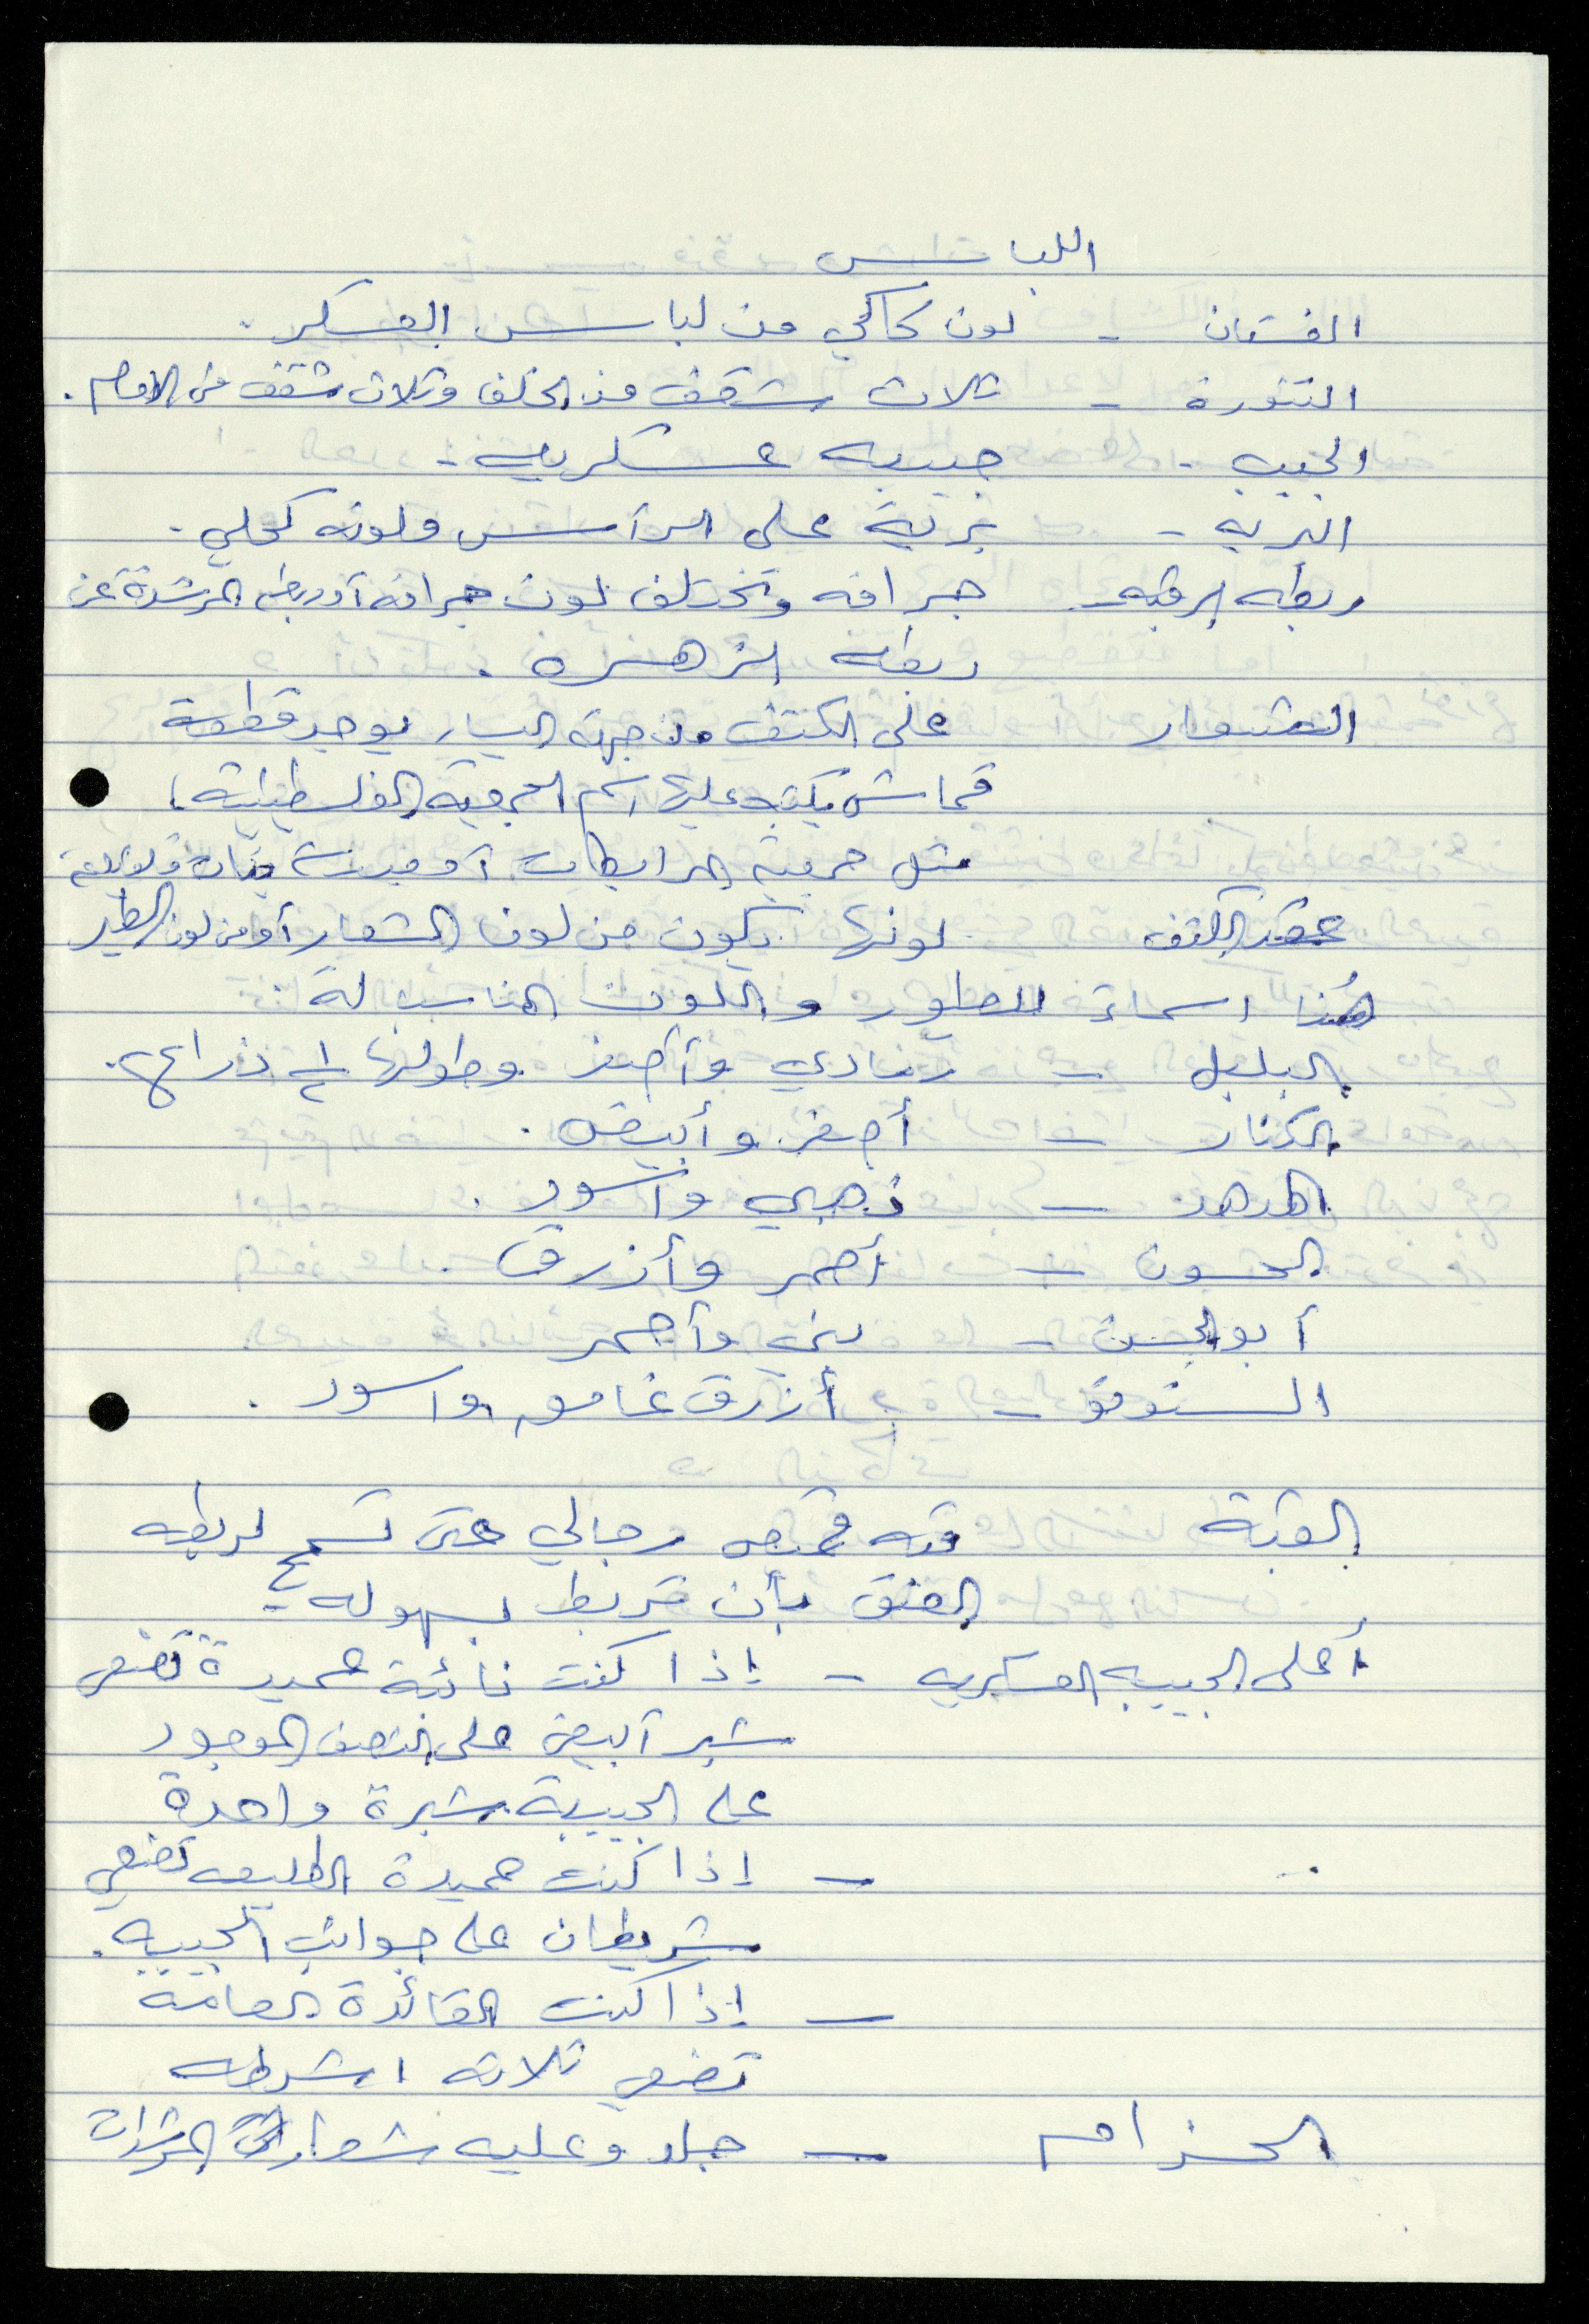 اللباس
الفستان - لون كاكي من لباس العسكر .
التنورة - ثلاث شقف من الخلف وثلاث شقف من الامام .
الجيب - جيبه عسكريه -
البريه - برية على الرأس ولونه كحلي .
ربطه الرقبه - جرافه وتختلف لون جرافة أو ربطه المرشدة عن
ربطه الزهره .
الشعار على الكتف من جهة اليسار يوجد قطعة
قماش يكتب عليها اسم الجمعية الفلسطينية ،
مثل جمعية المرابطات أو
عقد الكتف لونها يكون من لون الشعار أو من لون الطير
هُنا اسماء للطيور واللون المناسب له :
البلبل - رمادي وأصفر وطولها ١/٢ ذراع .
الكنار - أصفر وأبيض .
الهدهد - ذهبي وأسود .
الحسون - أحمر وأزرق .
أبو الحسن - بني وأحمر
السنونو - أزرق غامق واسود .
القبة قبه قميص رجالي حتى تسمح لربطه
العنق بأن تربط بسهوله
أعلى الجيبه العسكريه - إذا كنت نائبة عميدة تضعي
شبر أبيض على النصف الموجود
على الجيبة شبرة واحدة
- إذا كنت عميدة الطليعه تضعي
شريطان على جوانب الجيبه .
- إذا كنت القائدة العامة
تضعي ثلاثه اشرطه
الحزام - جلد وعليه شعار المرشدات